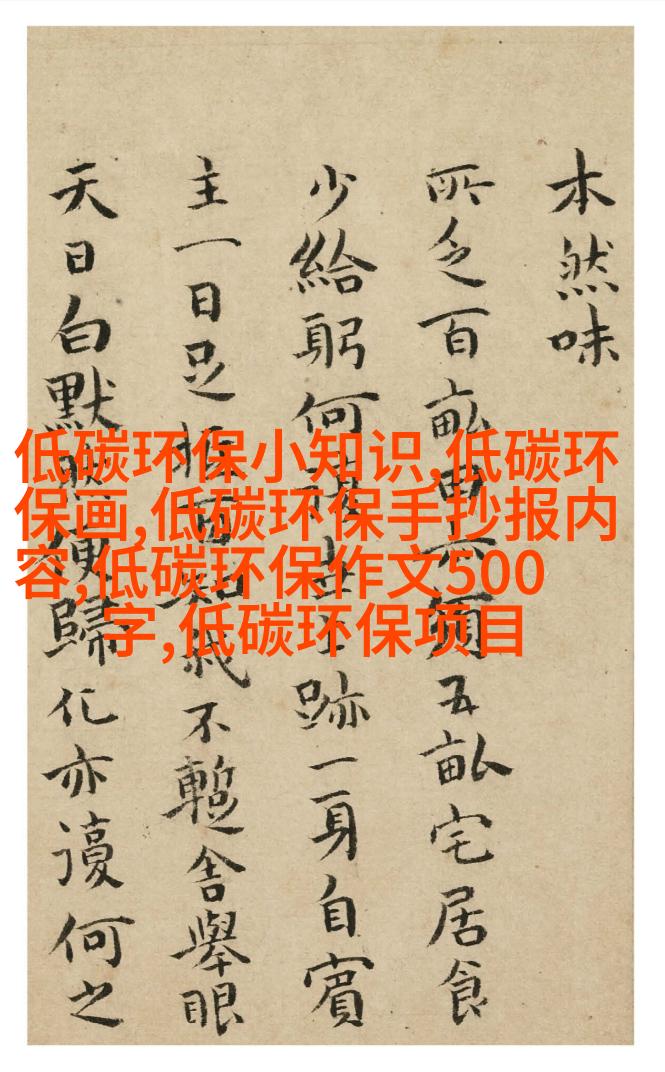 本然味
所乏百畝須五畝宅居食
少給躬何跡一身自賓
主一日足不暫舍舉眼
天日白默歸化亦謾何之
低碳环保小知识,低碳环
保画,低碳环保手抄报内
容,低碳环保作文500
字,低碳环保项目